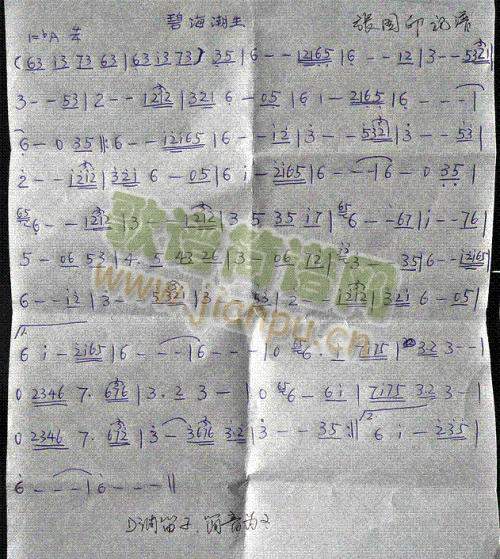 碧海潮生
1=bA
(63 i3 73 63 | 63 i3 73) 35 | 6 - - 12165 | 6 - - 12 | 3 - - 5321 |
3 - - 53 | 2 - - 1212 | 321 6 - 05 | 6 i - 2165 | 6 - - - |
6 - 0 35 ‖: 6 - - i2165 | 6 - - i2 | 3 - - 5321 | 3 - - 53 |
2 - - i212 | 321 6 - 05 | 6 i - 2165 | 6 - - - | 6 - 0 35 |
65 6 - - 1212 | 3 - - 1212 | 3 5 35 i7 | 65 6 - - 67 | i - - 76 |
5 - 06 53 | 4. 5 43 26 | 3 - 06 72 | 3 - - 35 | 6 - - 12165 |
6 - - i2 | 3 - - 5321 | 3 - - 53 | 2 - - 1212 | 321 6 - 05 |
6 i - 2165 | 6 - - - | 6 - - - | 0 65 6. i 7175 | 3.2 3 - - |
0 2346 7. 676 | 3. 2 3 - | 0 65 6 - 6i | 7i75 3.2 3 - |
0 2346 7. 672 | 3 - 3676 3.2 | 3 - - 35 :‖ 6 i - 235 |
6 - - - | 6 - - - ‖
歌谱简谱网
www.jianpu.cn